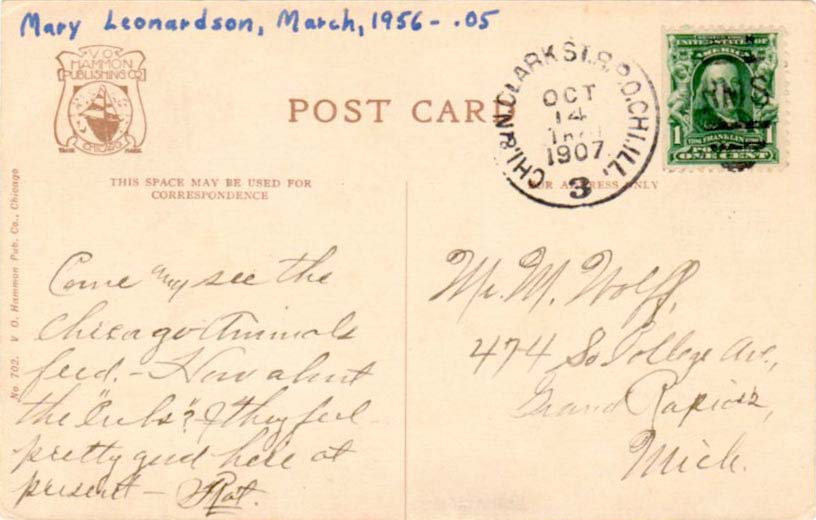 Mary Leonardson, March, 1956 - .05
V. O.
HAMMON
PUBLISHING CO
CHICAGO
TRADE MARK
POST CARD
CHI. & N. CLARK ST. R.P.O. CHI. ILL.
OCT
14
1907
3
UNITED STATES OF
AMERICA
1 1
FRANKLIN
ONE CENT
THIS SPACE MAY BE USED FOR
CORRESPONDENCE
FOR ADDRESS ONLY
No 702. V. O. Hammon Pub. Co., Chicago
Come and see the
Chicago Animals
feed. - How about
the "Cubs"? They feel
pretty good here at
present -
Mr. M. Wolff,
474 So College Ave.,
Grand Rapids,
Mich.